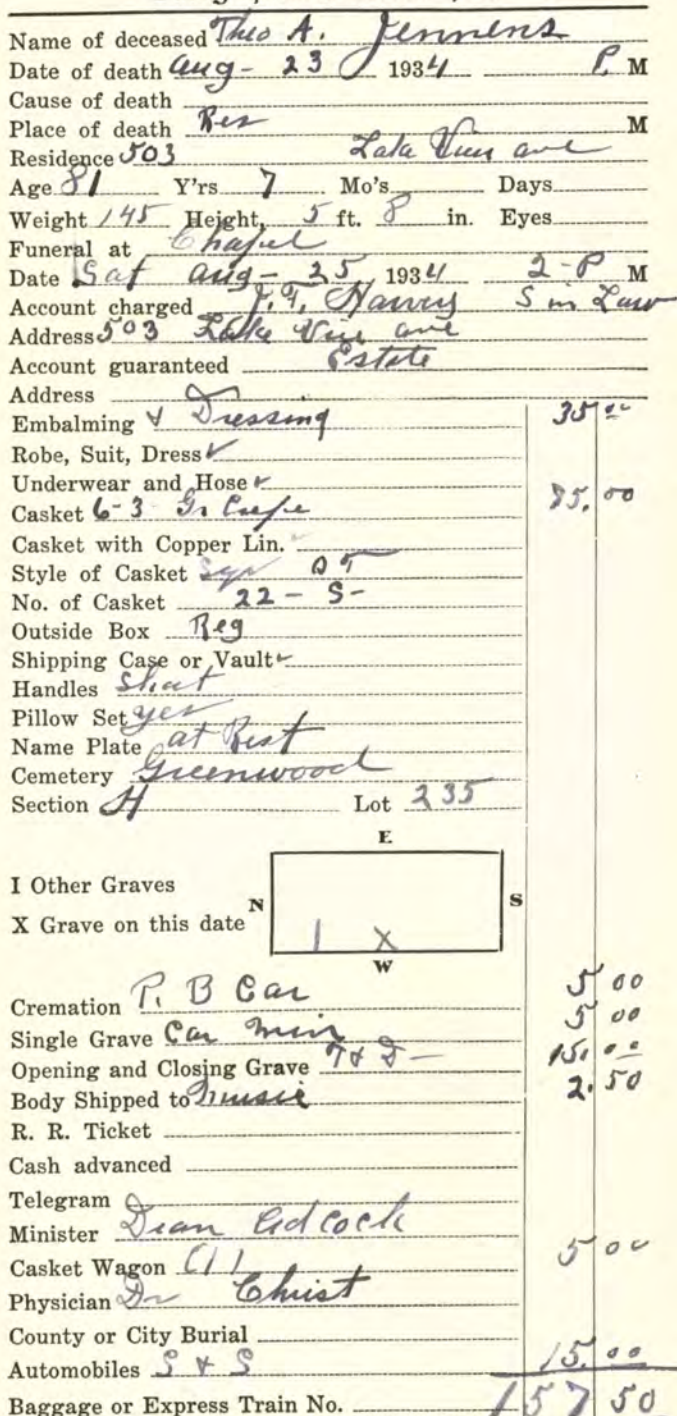 Name of deceased Theo A. Jennens
Date of death Aug- 23 1934 P. M
Cause of death
Place of death Res M
Residence 503 Lake View ave
Age 81 Y'rs 7 Mo's Days
Weight 145 Height, 5 ft. 8 in. Eyes
Funeral at Chapel
Date Sat aug- 25 1934 2-P M
Account charged Harvey S in Law
Address 503 Lake View ave
Account guaranteed Estate
Address
Embalming & Dressing 35 00
Robe, Suit, Dress ✓
Underwear and Hose ✓
Casket 6-3 Gr Crepe 75. 00
Casket with Copper Lin.
Style of Casket
No. of Casket 22 - S-
Outside Box Reg
Shipping Case or Vault ✓
Handles
Pillow Set yes
Name Plate at Rest
Cemetery Greenwood
Section H Lot 235
E
I Other Graves
N S
X Grave on this date
I X
W
Cremation P. B Car 5 00
Single Grave Car Min 5 00
Opening and Closing Grave T & D - 15. 00
Body Shipped to Music 2. 50
R. R. Ticket
Cash advanced
Telegram
Minister Dean Adcock
Casket Wagon (1) 5 00
Physician Dr Christ
County or City Burial
Automobiles S & S 15. 00
Baggage or Express Train No. 157 50